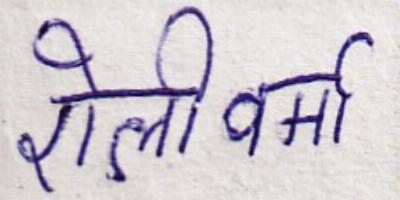 रोली वर्मा